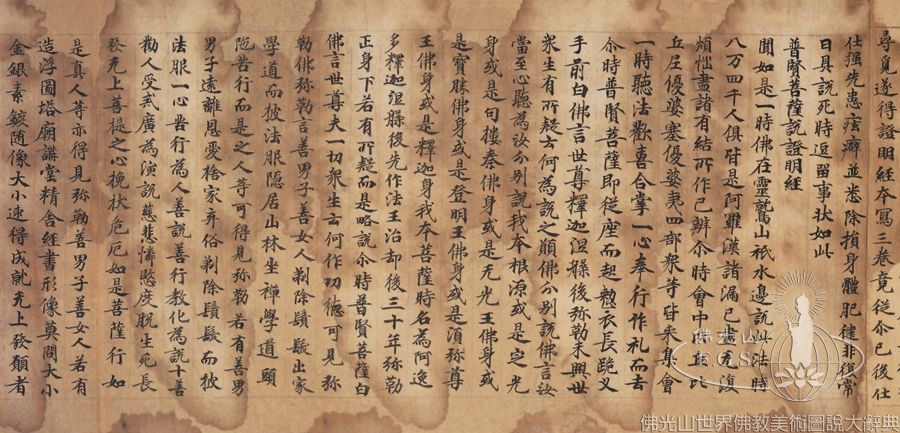 尋覓遂得證明經本寫三卷竟從尒已後仕
仕强先患痃癖並悉除損身體肥健非復常
日具說死時逗留事狀如此
普賢菩薩說證明經
聞如是一時佛在靈鷲山祇水邊說此法時
八万四千人俱皆是阿羅漢諸漏已盡无復
煩惱盡諸有結所作已辨尒時會中比
丘尼優婆塞優婆夷四部衆等皆來集會
一時聽法歡喜合掌一心奉行作礼而去
尒時普賢菩薩即從座而起懃衣長跪叉
手前白佛言世尊釋迦涅槃後弥勒未興世
衆生有所疑云何為說之願佛分別說佛言汝
當至心聽為汝分別說我本根源或是定光
身或是句樓秦佛身或是无光王佛身或
是寶勝佛身或是登明王佛身或是湏弥尊
王佛身或是釋迦身我本菩薩時名為阿逸
多釋迦涅槃後先作法王治却後三十年弥勒
正身下若有所疑而是略說尒時普賢菩薩白
佛言世尊夫一切衆生云何作功德可見弥
勒佛弥勒言善男子善女人剃除鬚髮出家
學道而披法服隠居山林坐禪學道頭
陁苦行而是之人等可得見弥勒若有善男
男子遠離恩愛捨家弃俗剃除鬚髮而披
法服一心苦行為人善說善行教化為說十善
勸人受戒廣為演說慈悲憐愍度脫生死長
發无上菩提之心挽狀危厄如是菩薩行如
是真人等亦得見弥勒善男子善女人若有
造浮圖塔廟講堂精舍經書形像莫問大小
金銀素鍍随像大小速得成就无上發願者
佛光山
F.G.S.
佛光山世界佛教美術圖說大辭典